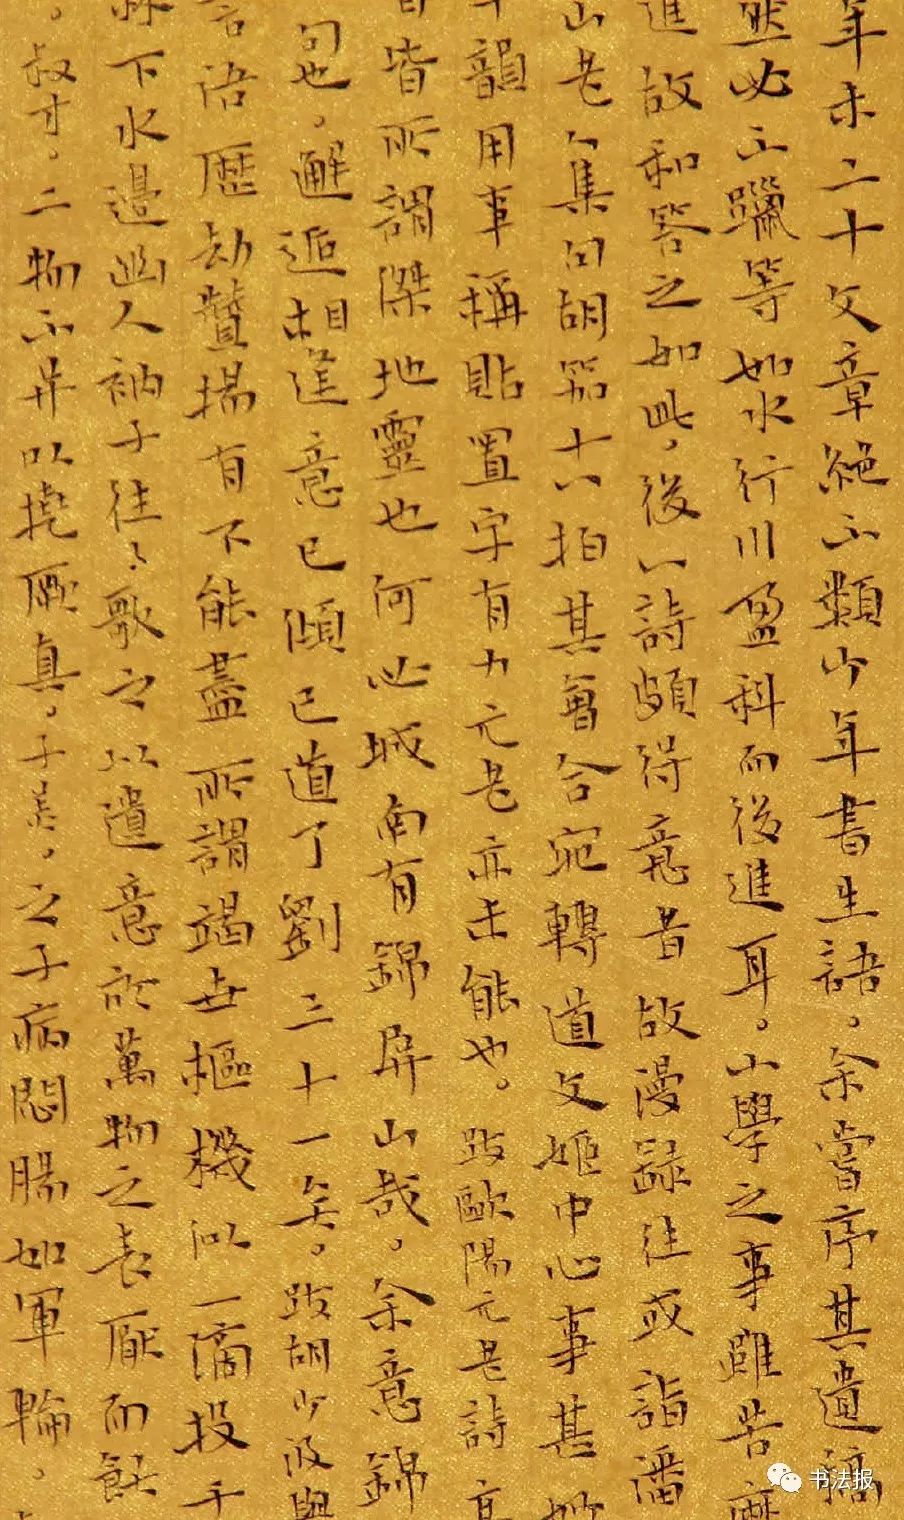 年未二十文章絕不類少年書生語余嘗序其遺稿
然必不躐等如水行川盈科而後進耳小學之事雖苦
進故和答之如此後一詩頗得意者故漫錄往或詣潘
山老人集句胡笳十八拍其會合宛轉道文姬中心事甚妙
韻用事穩貼置字有力元老亦未能也跋歐陽元老詩
皆所謂傑地靈也何必城南有錦屏山哉余意錦
句也邂逅相逢意已傾已道了劉三十一矣跋胡少汲與
言語歷劫贊揚有不能盡所謂竭世樞機似一滴投于
林下水邊幽人衲子往〻歌之以遣意於萬物之表厭而飫
叔才二物不并以撓厥真子善之子病悶腸如軍輪
书法报